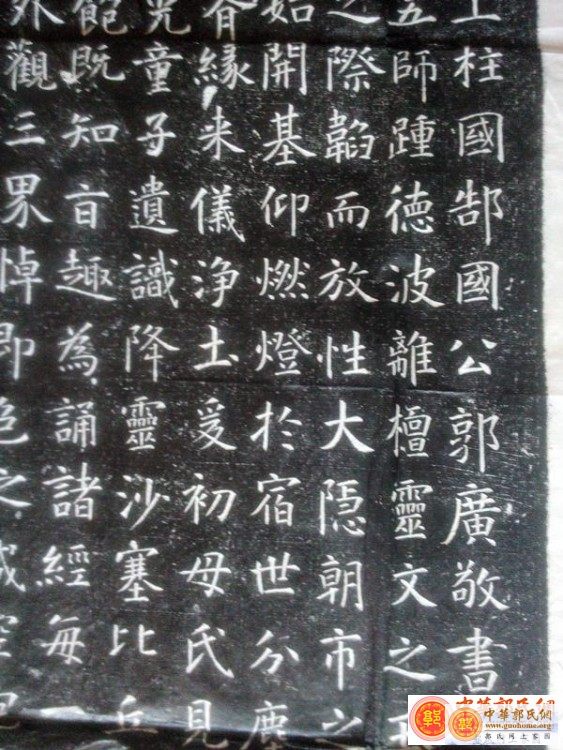 上柱國郜國公郭廣敬書
五師踵德波離檀靈文之
之際韜而放性大隱朝市
始開基仰燃燈於宿世分鹿
緣来儀浄土爰初母氏見
光童子遺識降靈沙塞比丘
飽既知旨趣為誦諸經每一
外觀三界悼即色之
中華郭氏網
www.guohome.org
郭氏网上家园